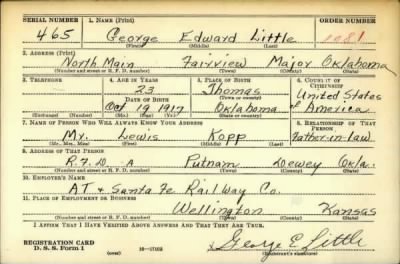 SERIAL NUMBER 1. NAME (Print) ORDER NUMBER
465 George Edward Little 1081
(First) (Middle) (Last)
2. ADDRESS (Print)
North Main Fairview Major Oklahoma
(Number and street or R. F. D. number) (Town) (County) (State)
3. TELEPHONE 4. AGE IN YEARS 5. PLACE OF BIRTH 6. COUNTRY OF CITIZENSHIP
23 Thomas United States
(Town or county)
DATE OF BIRTH of
Oct 19 1917 Oklahoma America
(Exchange) (Number) (Mo.) (Day) (Yr.) (State or country)
7. NAME OF PERSON WHO WILL ALWAYS KNOW YOUR ADDRESS 8. RELATIONSHIP OF THAT PERSON
Mr. Lewis Kopp Father-in-law
(Mr., Mrs., Miss) (First) (Middle) (Last)
9. ADDRESS OF THAT PERSON
R.F.D. A Putnam Dewey Okla.
(Number and street or R. F. D. number) (Town) (County) (State)
10. EMPLOYER'S NAME
AT & Santa Fe Railway Co.
11. PLACE OF EMPLOYMENT OR BUSINESS
Wellington Kansas
(Number and street or R. F. D. number) (Town) (County) (State)
I AFFIRM THAT I HAVE VERIFIED ABOVE ANSWERS AND THAT THEY ARE TRUE.
REGISTRATION CARD
D. S. S. Form 1 George E Little
(Registrant's signature)